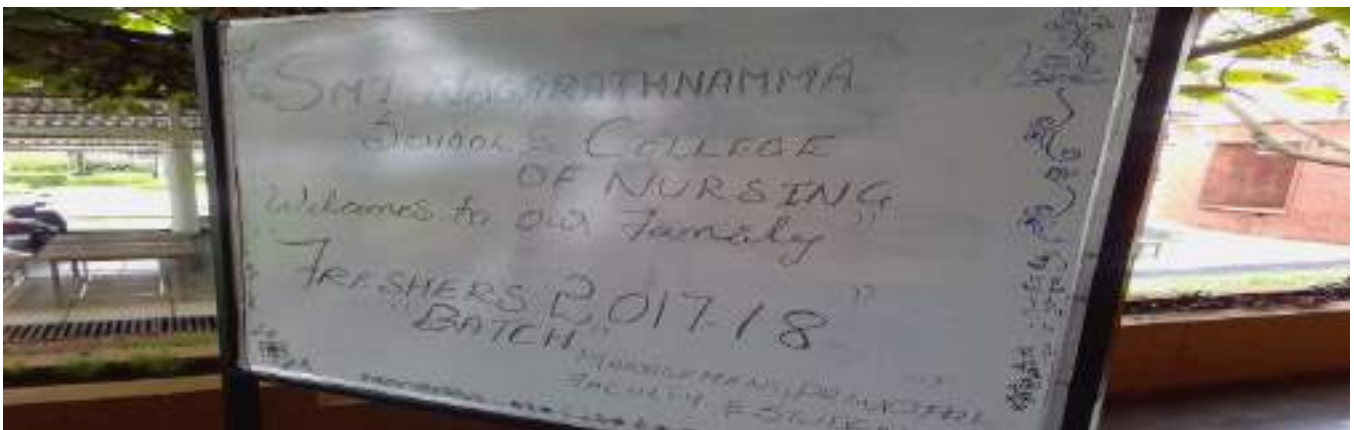 SMT. NAGARATHNAMMA
SCHOOL & COLLEGE
OF NURSING
Welcomes to our Family"
FRESHERS 2017-18"
"BATCH"
MANAGEMENT, PRINCIPAL
FACULTY & STUDENTS